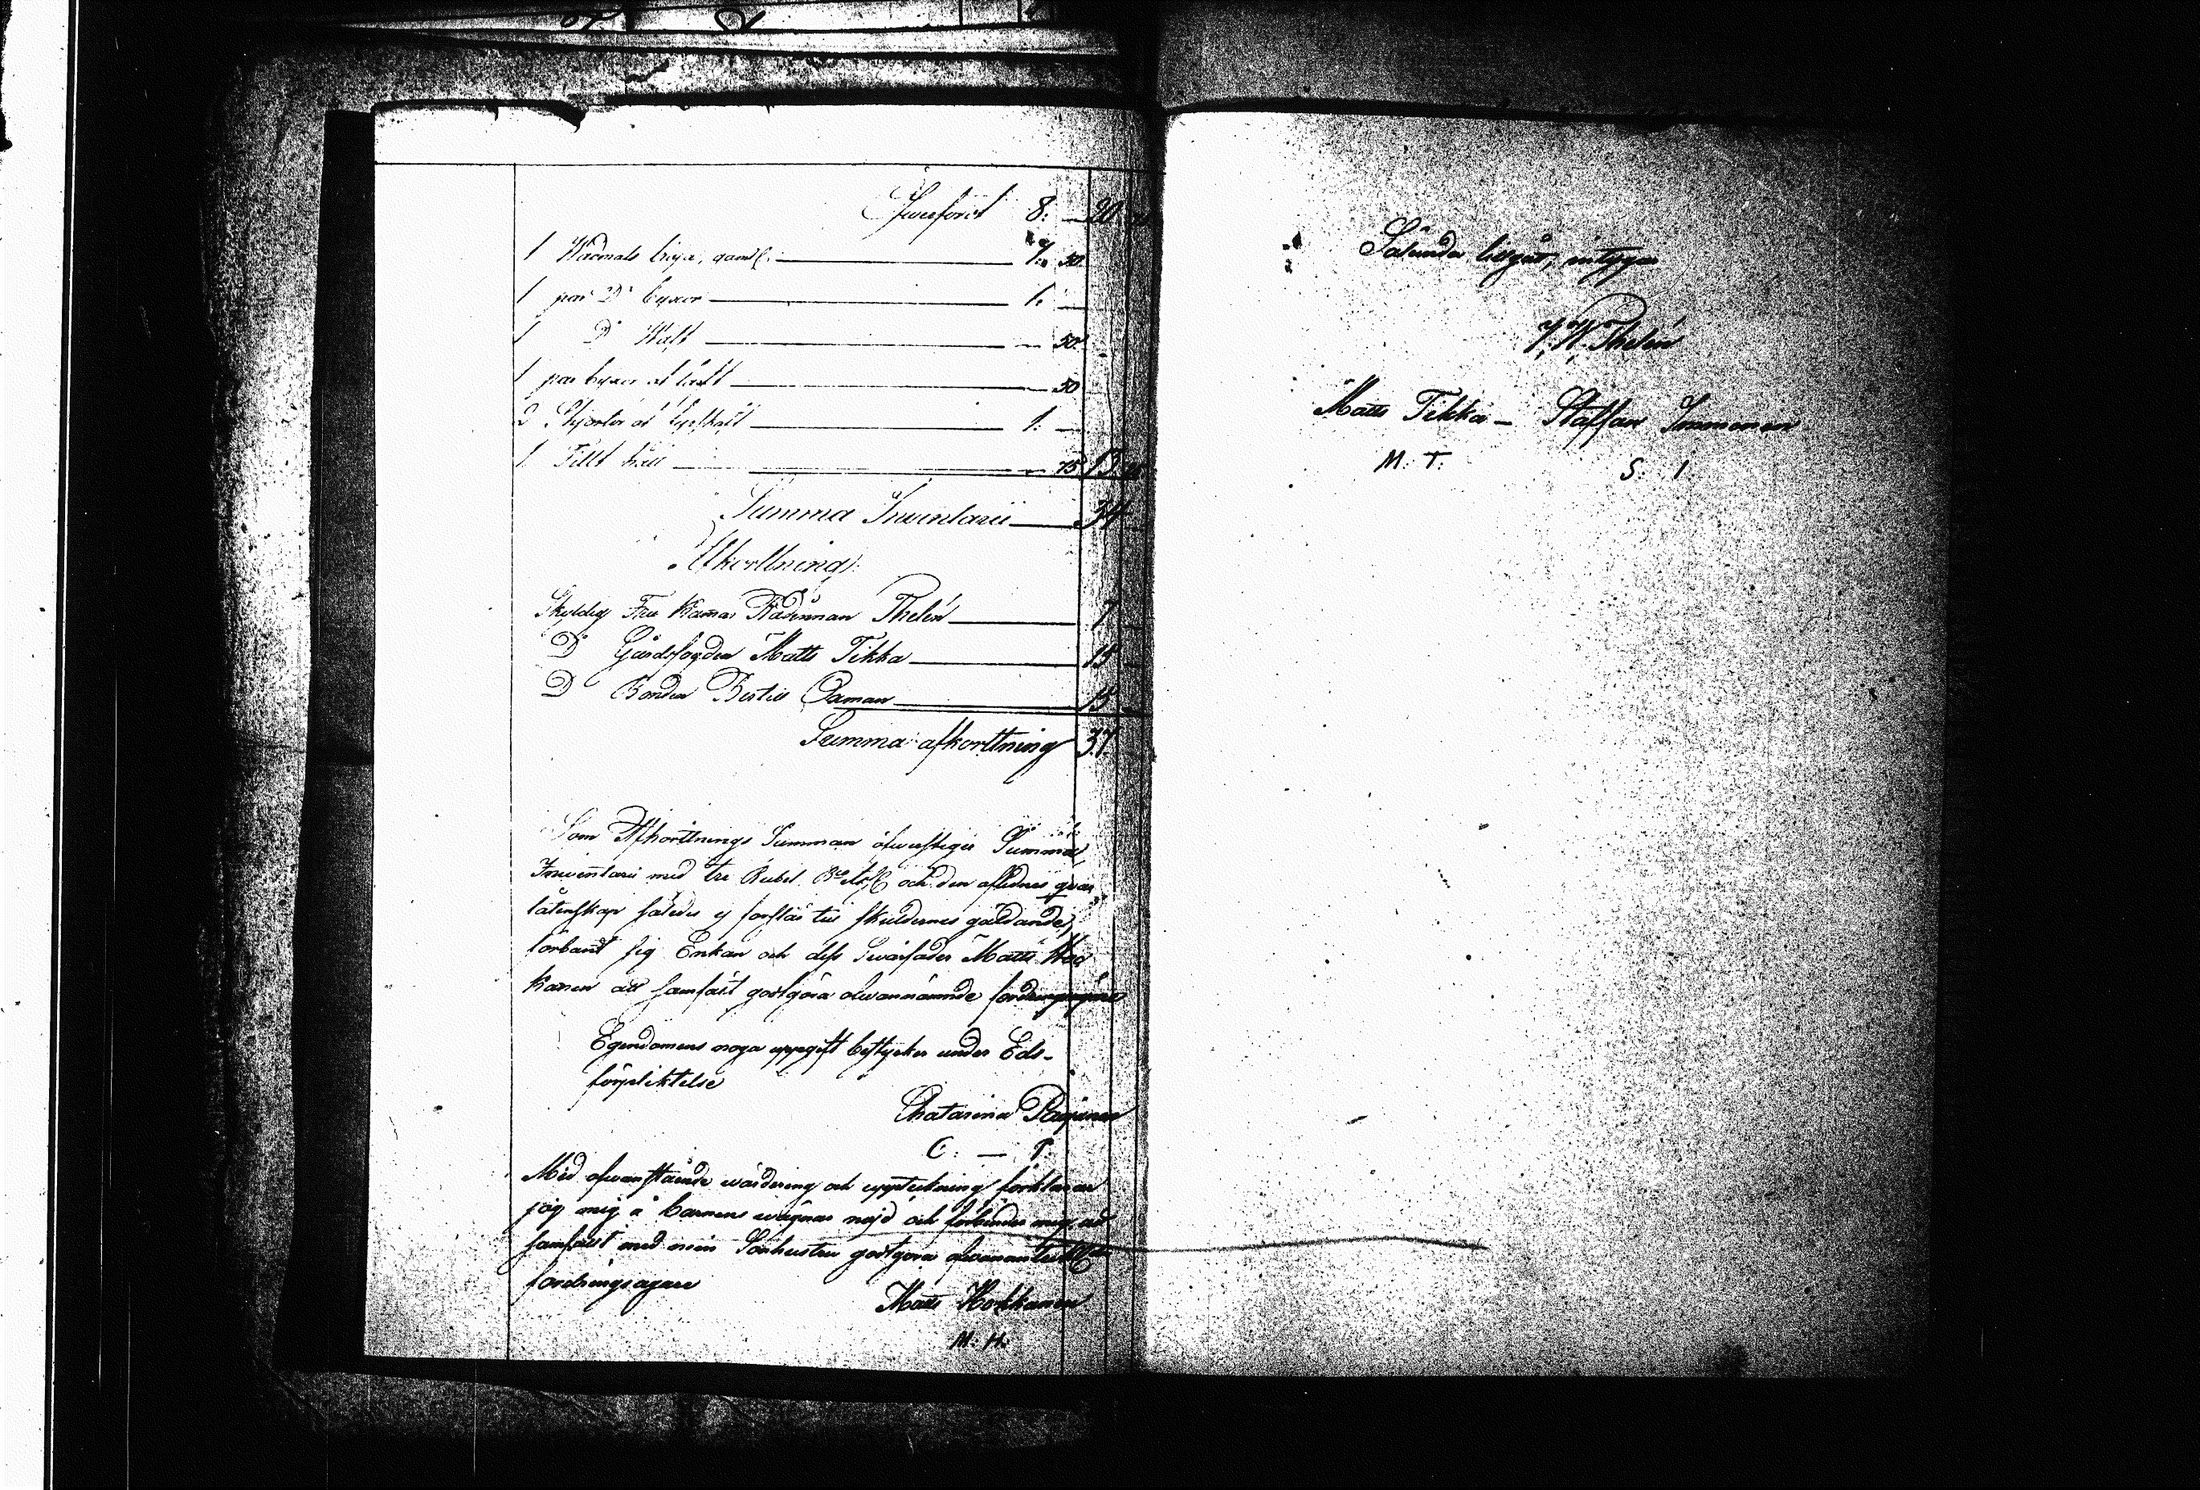 Swefört 8: — 20
1 Wadmals tröja, gaml. — 1: 50
1 par D:o byxor — 1: —
1 D:o Wäst — — 50
1 par byxor af lärft — — 50
2 Skjortor af — 1: —
1 Fillt hatt — — 75 13
Summa Inventarii — 34
Afkorttning:
Skyldig Fru Rådman Thelén — 7
D:o Gårdsfogden Matts Tikka — 15
D:o Bonden Bertill Oxman — 15
Summa afkorttning 37
Som Afkorttnings Summan öfwerstiger Summa
Inventarii med tre Rubel och den aflidnes qvar
låtenskap således ej förslår till skuldernes gäldande,
förbant sig Enkan och dess Swärfader Matts Hok
kanen att samfält godtgöra ofwannämnde fordringsägare
Egendomens noga uppgift bestyrker under Eds-
förpliktelse
Chatarina
C: — P:
Med ofwanstående wärdering och uppteckning förklarar
jag mig å barnens wägnar nöjd och förbinder mig att
samfält med min Sonhustru godtgöra
fordringsägare
Matts Hokkanen
M: H:
Sålunda betygar, intygar
J. W. Thelén
Matts Tikka — Staffan Immonen
M: T: S: I: